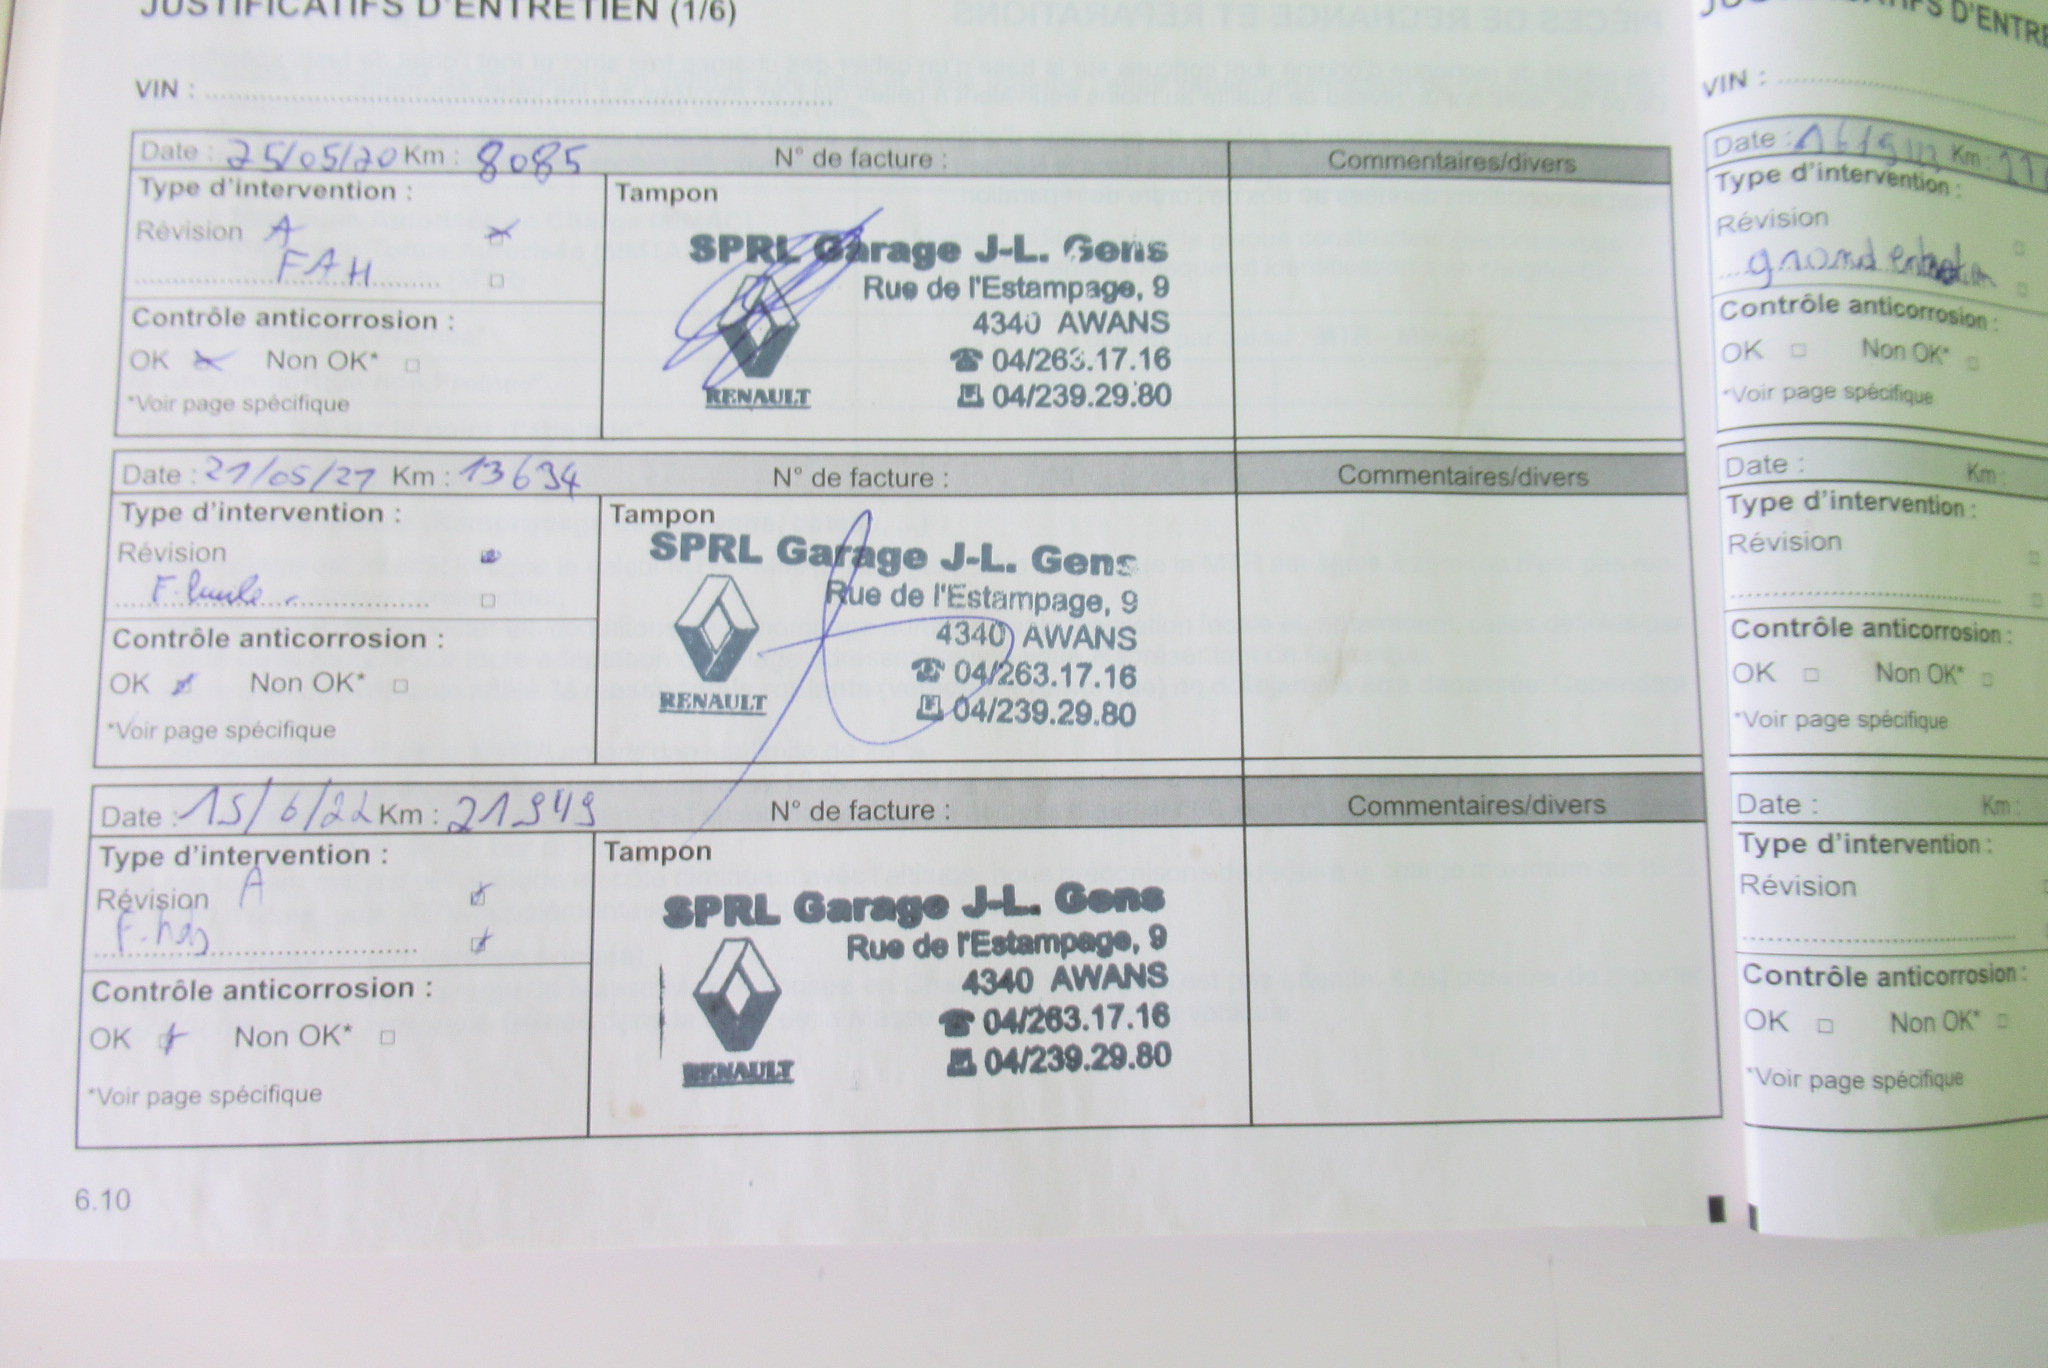 JUSTIFICATIFS D'ENTRETIEN (1/6)
VIN :
Date : 25/05/20 Km : 8085 N° de facture : Commentaires/divers
Type d'intervention : Tampon
Révision A
FAH
Contrôle anticorrosion :
OK Non OK*
*Voir page spécifique
SPRL Garage J-L. Gens
Rue de l'Estampage, 9
4340 AWANS
☎ 04/263.17.16
04/239.29.80
RENAULT
Date : 21/05/21 Km : 13634 N° de facture : Commentaires/divers
Type d'intervention : Tampon
Révision
F. huile
Contrôle anticorrosion :
OK Non OK*
*Voir page spécifique
SPRL Garage J-L. Gens
Rue de l'Estampage, 9
4340 AWANS
☎ 04/263.17.16
04/239.29.80
RENAULT
Date : 15/6/22 Km : 21949 N° de facture : Commentaires/divers
Type d'intervention : Tampon
Révision A
Contrôle anticorrosion :
OK Non OK*
*Voir page spécifique
SPRL Garage J-L. Gens
Rue de l'Estampage, 9
4340 AWANS
☎ 04/263.17.16
04/239.29.80
RENAULT
6.10
D'ENTRE
VIN :
Date : Km :
Type d'intervention :
Révision
grand entretien
Contrôle anticorrosion :
OK Non OK*
*Voir page spécifique
Date : Km :
Type d'intervention :
Révision
Contrôle anticorrosion :
OK Non OK*
*Voir page spécifique
Date : Km :
Type d'intervention :
Révision
Contrôle anticorrosion :
OK Non OK*
*Voir page spécifique